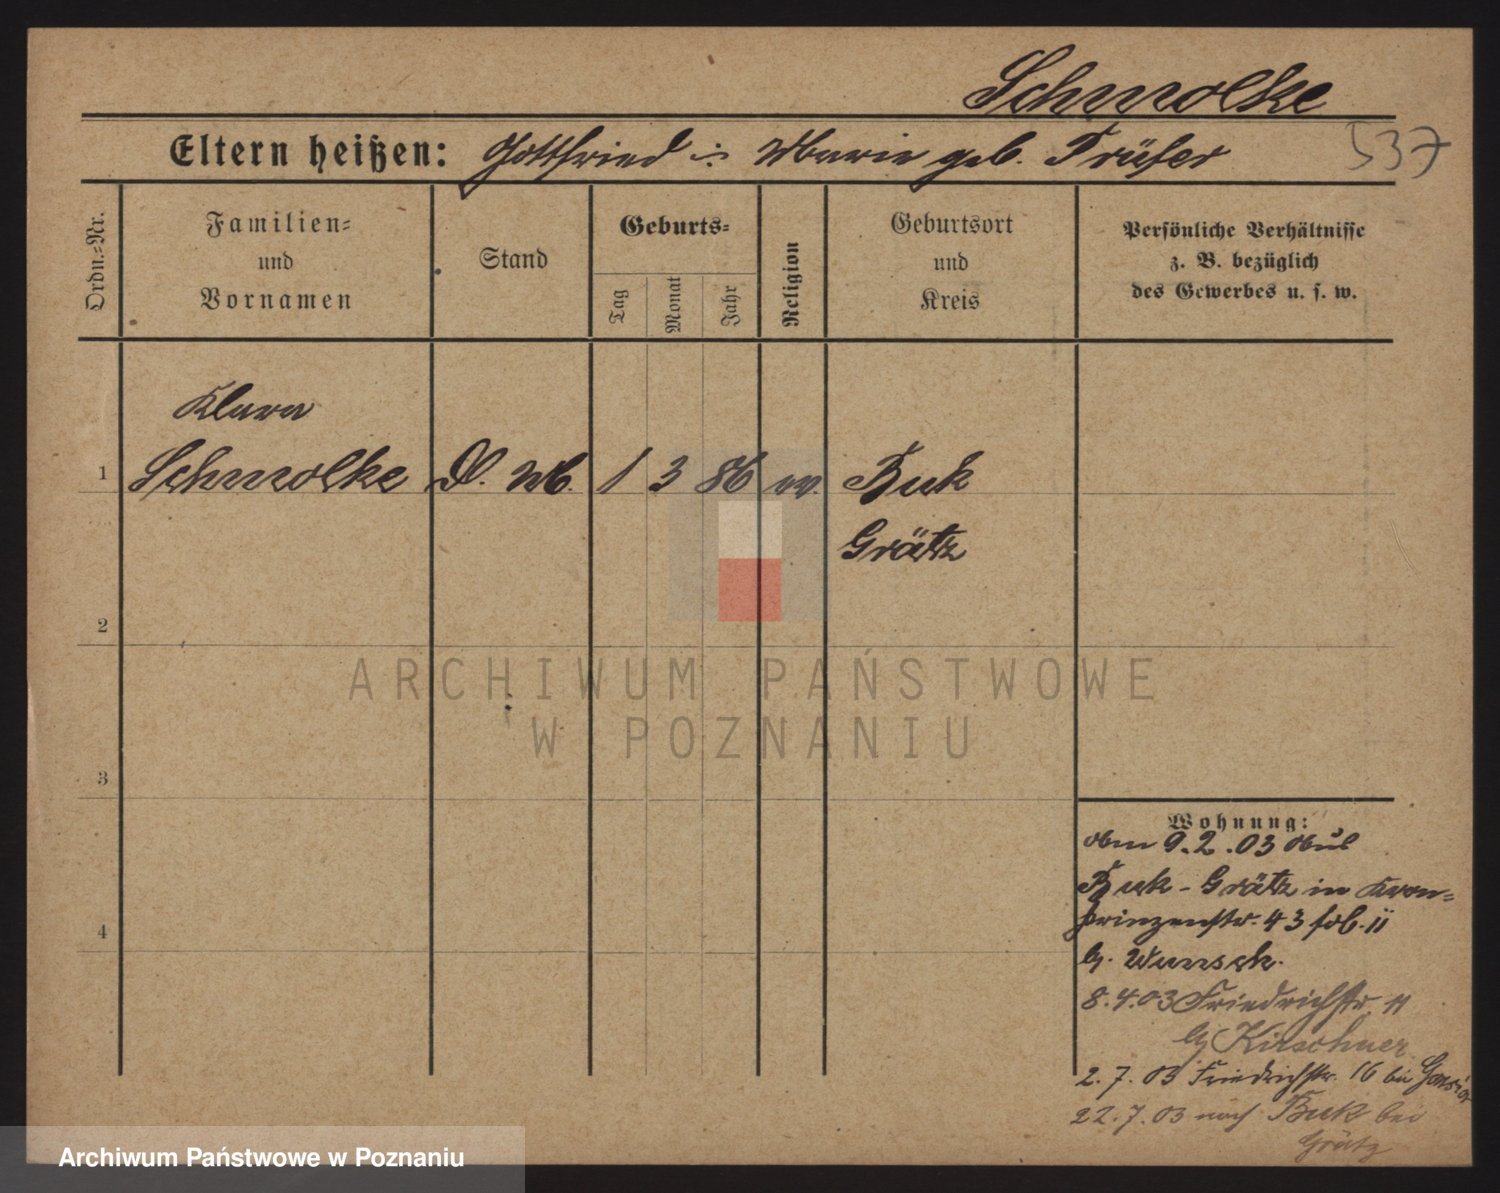 Schmolke
Eltern heißen: Gottfried u. Marie geb. Prüfer
537
Ordn.-Nr.
Familien-
und
Vornamen
Stand
Geburts-
Tag
Monat
Jahr
Religion
Geburtsort
und
Kreis
Persönliche Verhältnisse
z. B. bezüglich
des Gewerbes u. s. w.
Klara
1 Schmolke D. M. 1 3 86 ev. Buk
Grätz
2
3
4
ARCHIWUM PAŃSTWOWE
W POZNANIU
Wohnung:
Am 9.2.03 aus
Buk - Grätz in Kron-
prinzenstr. 43 II
b. Wunsch.
8.4.03 Friedrichstr. 11
b. Kirschner
2.7.03 Friedrichstr. 16 bei
22.7.03 nach Buk bei
Grätz
Archiwum Państwowe w Poznaniu